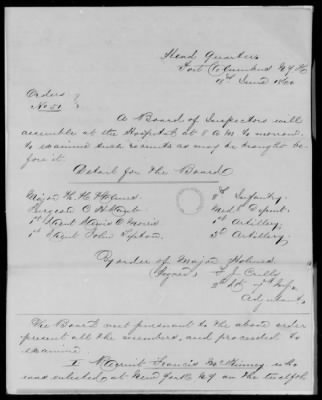 Head Quarters
Fort Columbus N.Y.H.
18th June 1860
Orders
No 81
A Board of Inspectors will
assemble at the Hospital at 8 A.M. to morrow
to examine such recruits as may be brought be-
fore it.
Detail for the Board
Major T. H. Holmes 8th Infantry
Surgeon C. H. Laub Medl Depmt.
1st Lieut Lewis O. Morris 1st Artillery
1st Lieut John 2d Artillery
By order of Major Holmes
(Signed)
2d Lt 7th Inf.
Adjutant
The Board met pursuant to the above order
present all the members, and proceeded to
examine
I Recruit Francis McKinney who
was enlisted at New York N.Y. on the twelfth